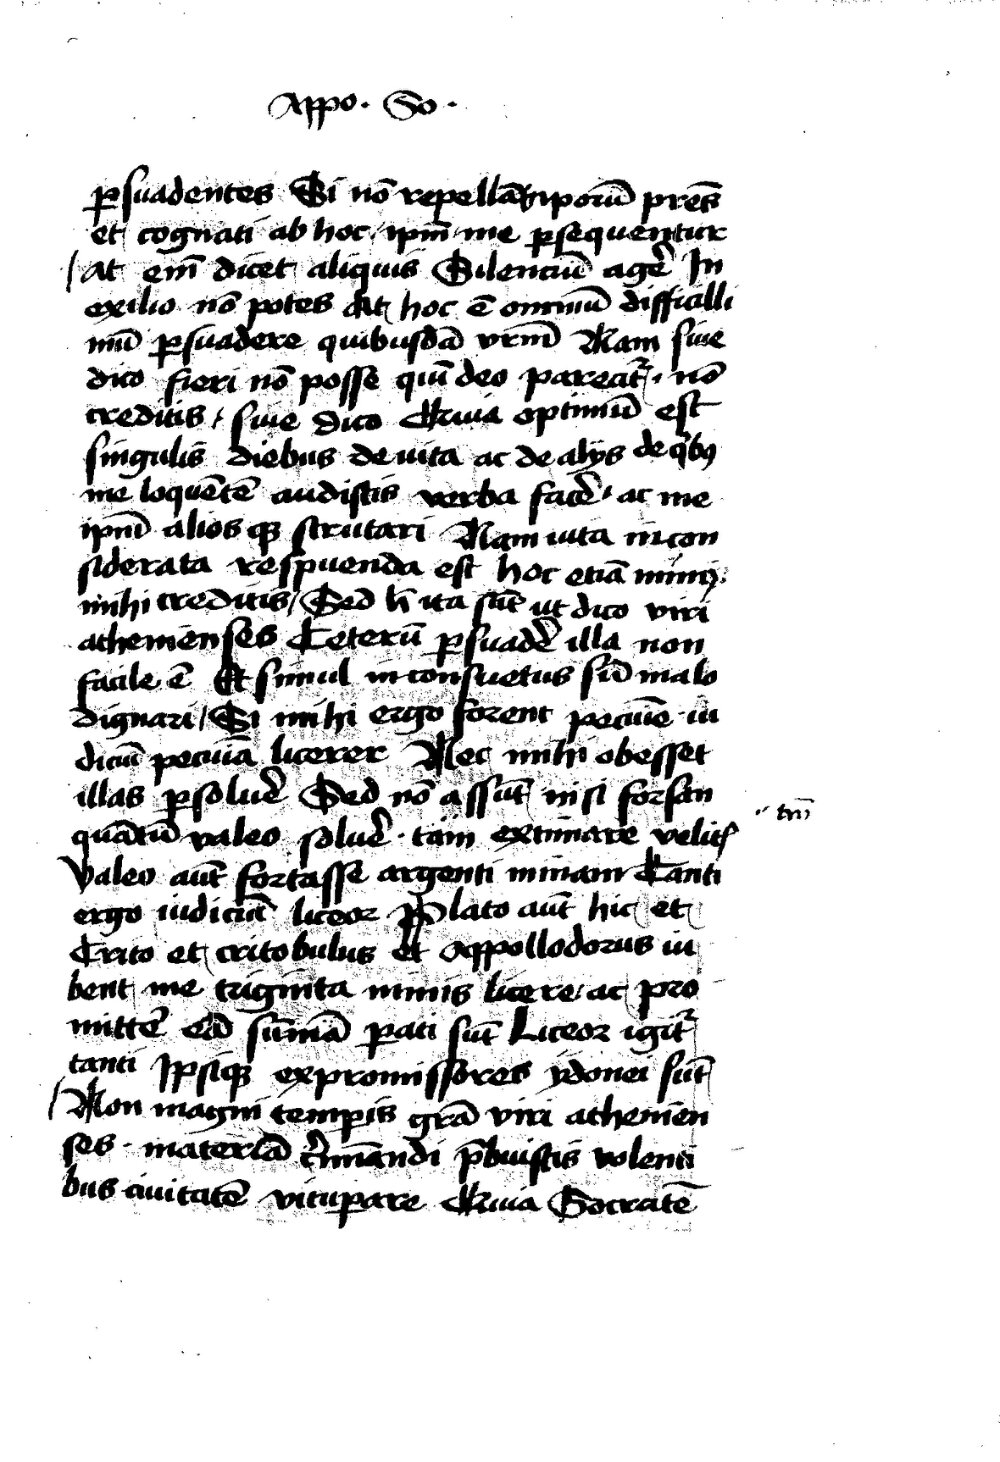 Appo. So.
p̱suadentes Si nō repellā ipoꝝū pr̄es
et cognati ab hoc / ip̄m me p̱sequentur
At em̄ dicet aliquis Silenciū agē In
exilio nō potes At hoc ē omniū difficilli
mū p̱suadere quibusdā vr̄m Nam siue
dico fieri nō posse qui deo pareat̄. nō
creditis / siue dico Quia optimū est
singulis diebus de uita ac de alijs de qͥbꝫ
me loquētē audistis verba facē / ac me
ip̄m alios qꝫ scrutari Nam uita incon
siderata respuenda est hoc etiā minꝰ
mihi creditis / Sed h̄ ita sūt ut dico viri
athenienses Ceterū p̱suadē illa non
facile ē Et simul inconsuetus sū malo
dignari / Si mihi ergo forent pecuīe iu
diciū pecuīa licerer Nec mihi obesset
illas p̱soluē Sed nō assūt nisi forsan
quātū valeo soluē. tām extimare velitꝭ
tm̄
Valeo aūt fortasse argenti minam Tanti
ergo iudiciū liceor Plato aūt hic et
Crito et critobulus et Appollodorus iu
bent me triginta minis licere / ac pro
mittē eā sūmā pati sūt Liceor igit̄
tanti Ipsiqꝫ expromissores ydonei sūt
Non magni temp̱is grā viri athenien
ses. materiā cͥmināndi p̄buistis volenti
bus ciuitatē vitup̱are Quia Socratē